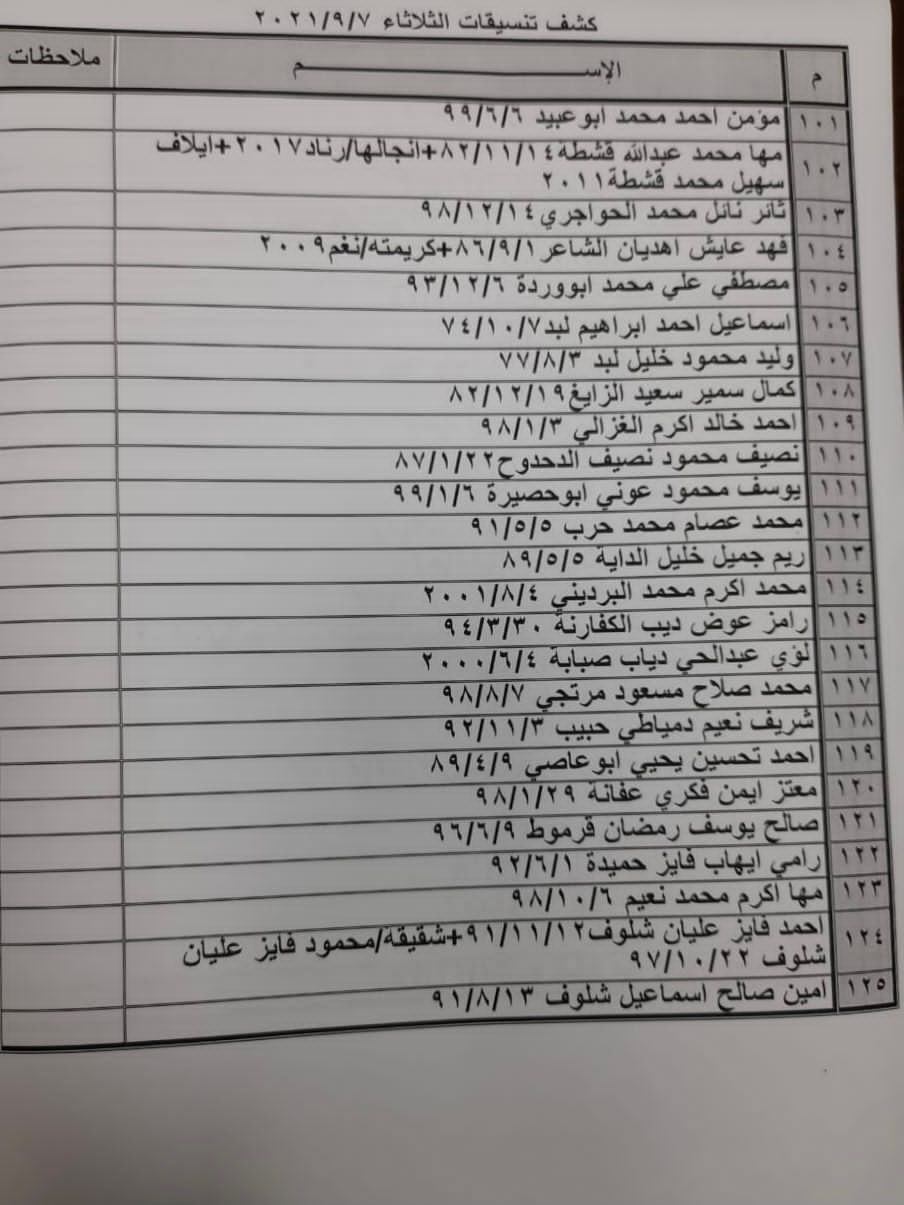 كشف تنسيقات الثلاثاء ٢٠٢١/٩/٧
م الإســـــــــم ملاحظات
١٠١ مؤمن احمد محمد ابو عبيد ٩٩/٦/٦
١٠٢ مها محمد عبدالله قشطة٨٢/١١/١٤+انجالها/رناد٢٠١٧+ايلاف
سهيل محمد قشطة٢٠١١
١٠٣ ثائر نائل محمد الحواجري ٩٨/١٢/١٤
١٠٤ فهد عايش اهديان الشاعر ٨٦/٩/١+كريمته/نغم٢٠٠٩
١٠٥ مصطفي علي محمد ابووردة ٩٣/١٢/٦
١٠٦ اسماعيل احمد ابراهيم لبد٧٤/١٠/٧
١٠٧ وليد محمود خليل لبد ٧٧/٨/٣
١٠٨ كمال سمير سعيد الزايغ٨٢/١٢/١٩
١٠٩ احمد خالد اكرم الغزالي ٩٨/١/٣
١١٠ نصيف محمود نصيف الدحدوح٨٧/١/٢٢
١١١ يوسف محمود عوني ابوحصيرة ٩٩/١/٦
١١٢ محمد عصام محمد حرب ٩١/٥/٥
١١٣ ريم جميل خليل الداية ٨٩/٥/٥
١١٤ محمد اكرم محمد البرديني ٢٠٠١/٨/٤
١١٥ رامز عوض ديب الكفارنة ٩٤/٣/٣٠
١١٦ لؤي عبدالحي دياب صبابة ٢٠٠٠/٦/٤
١١٧ محمد صلاح مسعود مرتجي ٩٨/٨/٧
١١٨ شريف نعيم دمياطي حبيب ٩٢/١١/٣
١١٩ احمد تحسين يحيي ابوعاصي ٨٩/٤/٩
١٢٠ معتز ايمن فكري عفانة ٩٨/١/٢٩
١٢١ صالح يوسف رمضان قرموط ٩٦/٦/٩
١٢٢ رامي ايهاب فايز حميدة ٩٢/٦/١
١٢٣ مها اكرم محمد نعيم ٩٨/١٠/٦
١٢٤ احمد فايز عليان شلوف٩١/١١/١٢+شقيقه/محمود فايز عليان
شلوف ٩٧/١٠/٢٢
١٢٥ امين صالح اسماعيل شلوف ٩١/٨/١٣